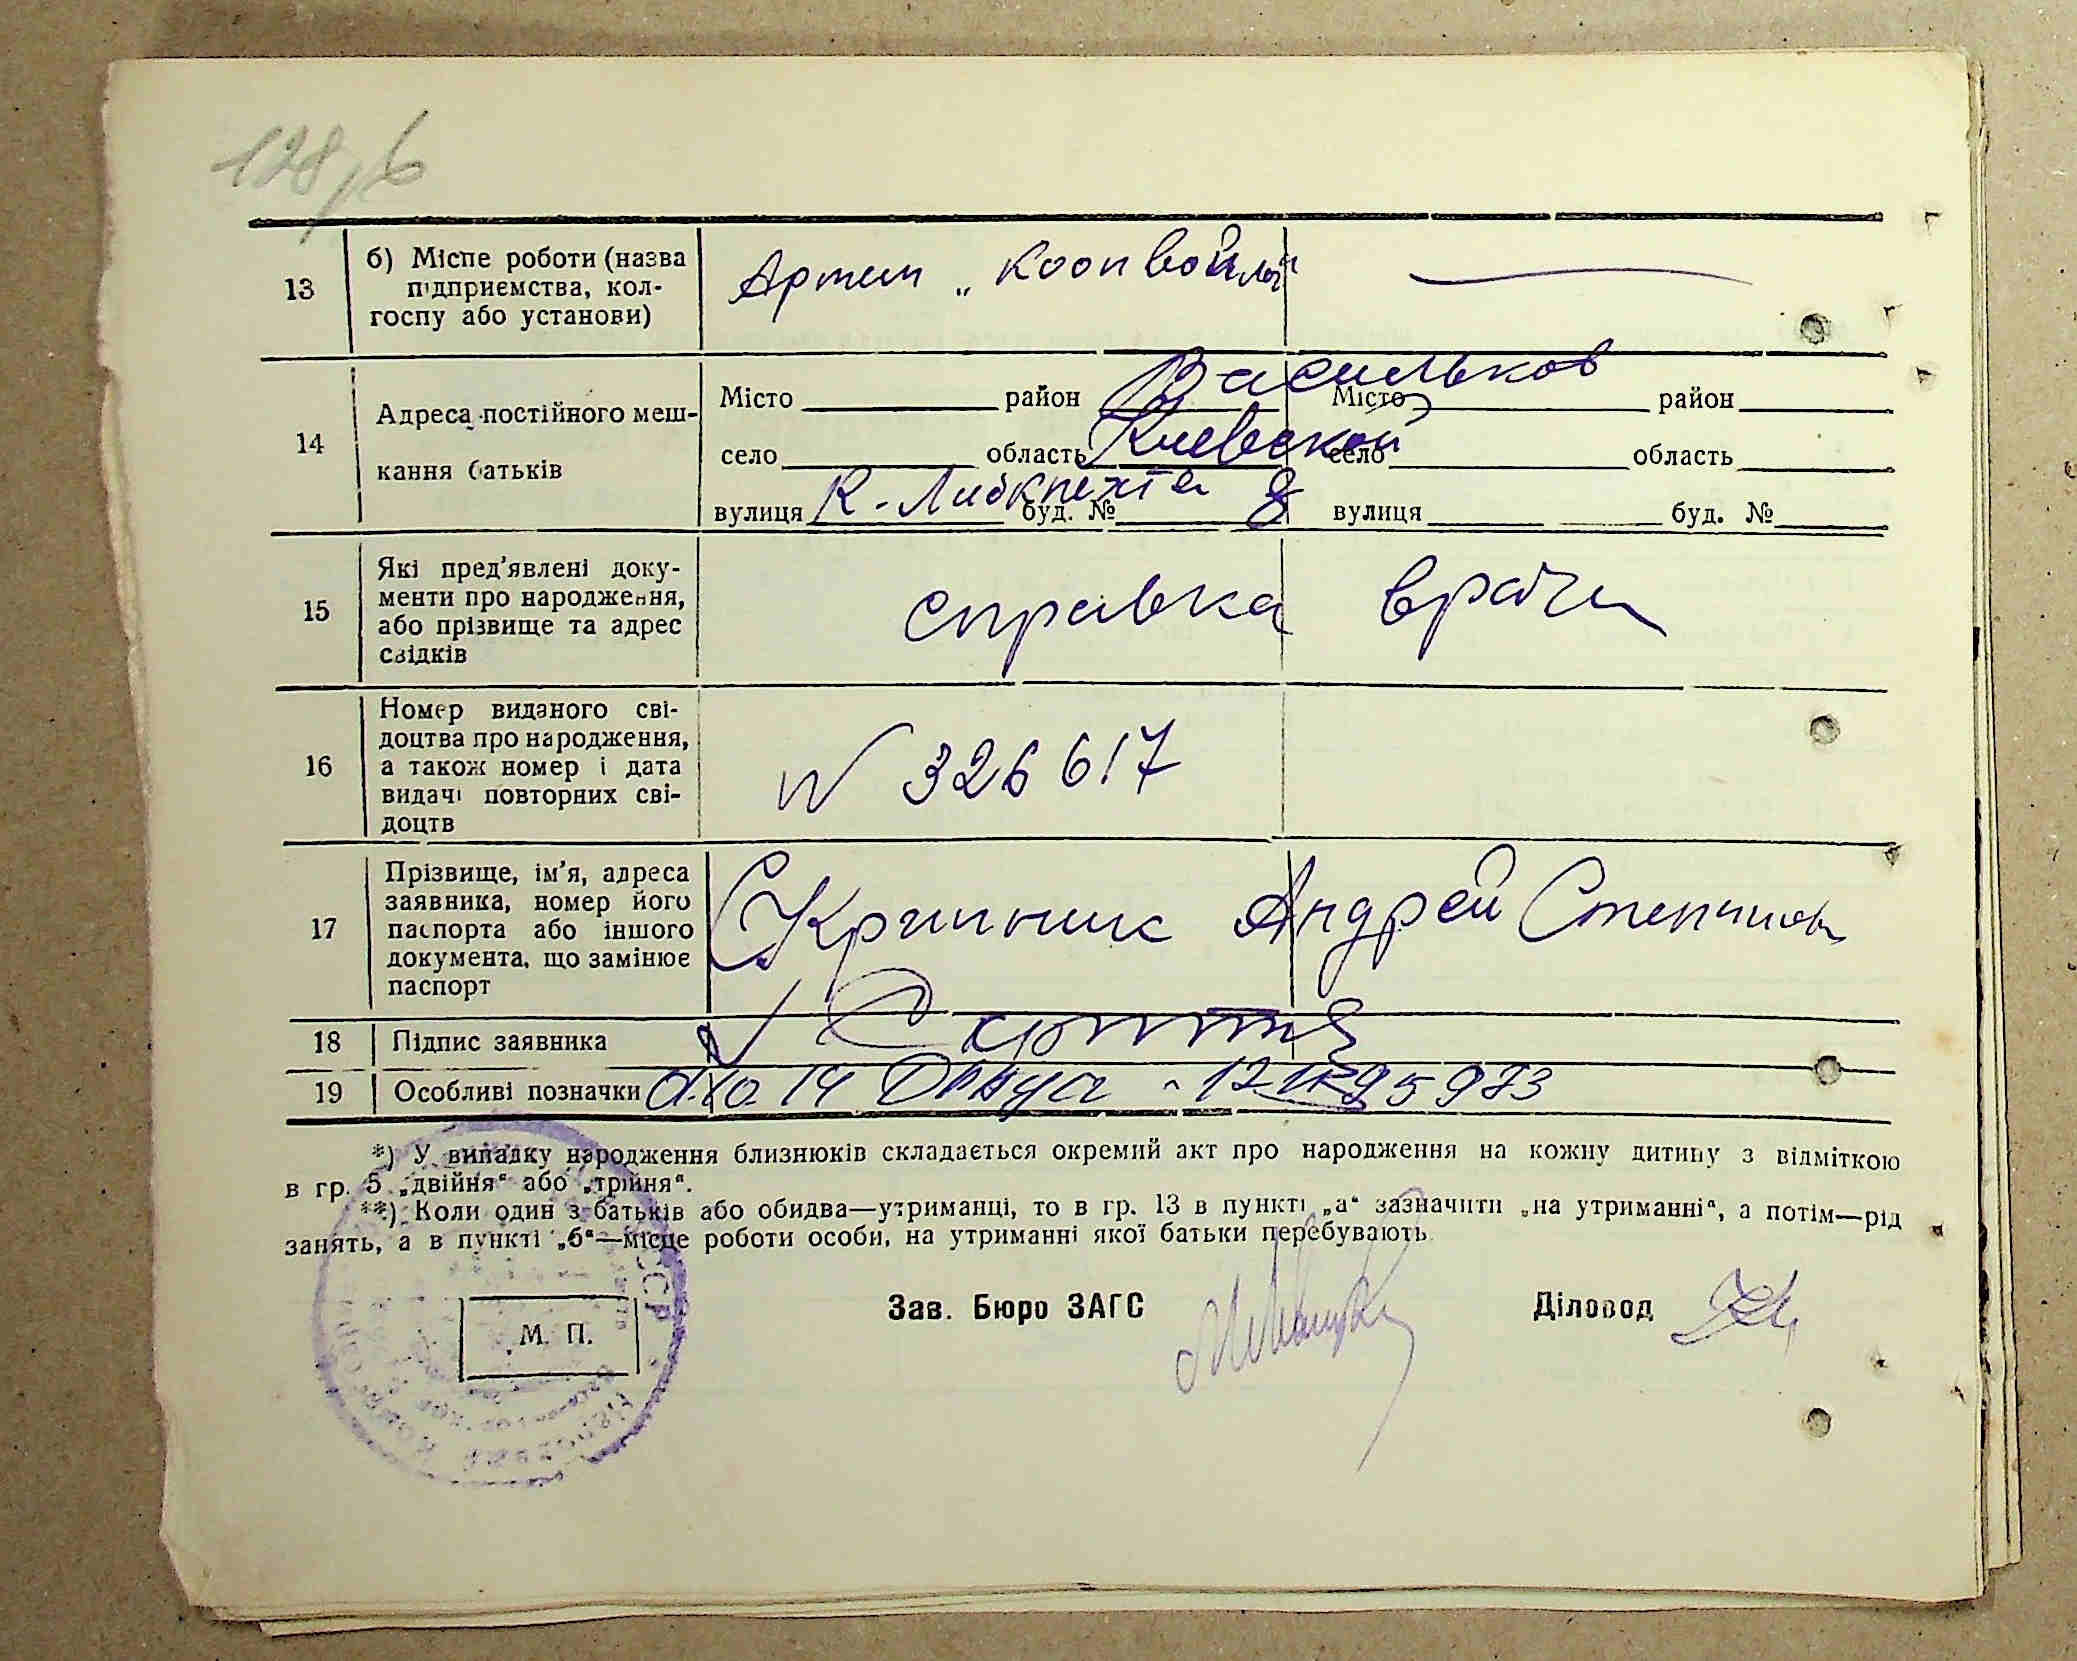 128,б
13
б) Місце роботи (назва
підприємства, кол-
госпу або установи)
Артель „Коопвойлок“
14
Адреса постійного меш-
кання батьків
Місто район Васильков Місто район
село область Киевской село область
вулиця К-Либкнехта буд. № 8 вулиця буд. №
15
Які пред'явлені доку-
менти про народження,
або прізвище та адрес
свідків
справка врача
16
Номер виданого сві-
доцтва про народження,
а також номер і дата
видачі повторних сві-
доцтв
N 326617
17
Прізвище, ім'я, адреса
заявника, номер його
паспорта або іншого
документа, що замінює
паспорт
Скрипник Андрей Степанов
18 Підпис заявника
19 Особливі позначки
*) У випадку народження близнюків складається окремий акт про народження на кожну дитину з відміткою
в гр. 5 „двійня“ або „трійня“.
**) Коли один з батьків або обидва—утриманці, то в гр. 13 в пункті „а“ зазначити „на утриманні“, а потім—рід
занять, а в пункті „б“—місце роботи особи, на утриманні якої батьки перебувають.
Зав. Бюро ЗАГС Діловод
М. П.